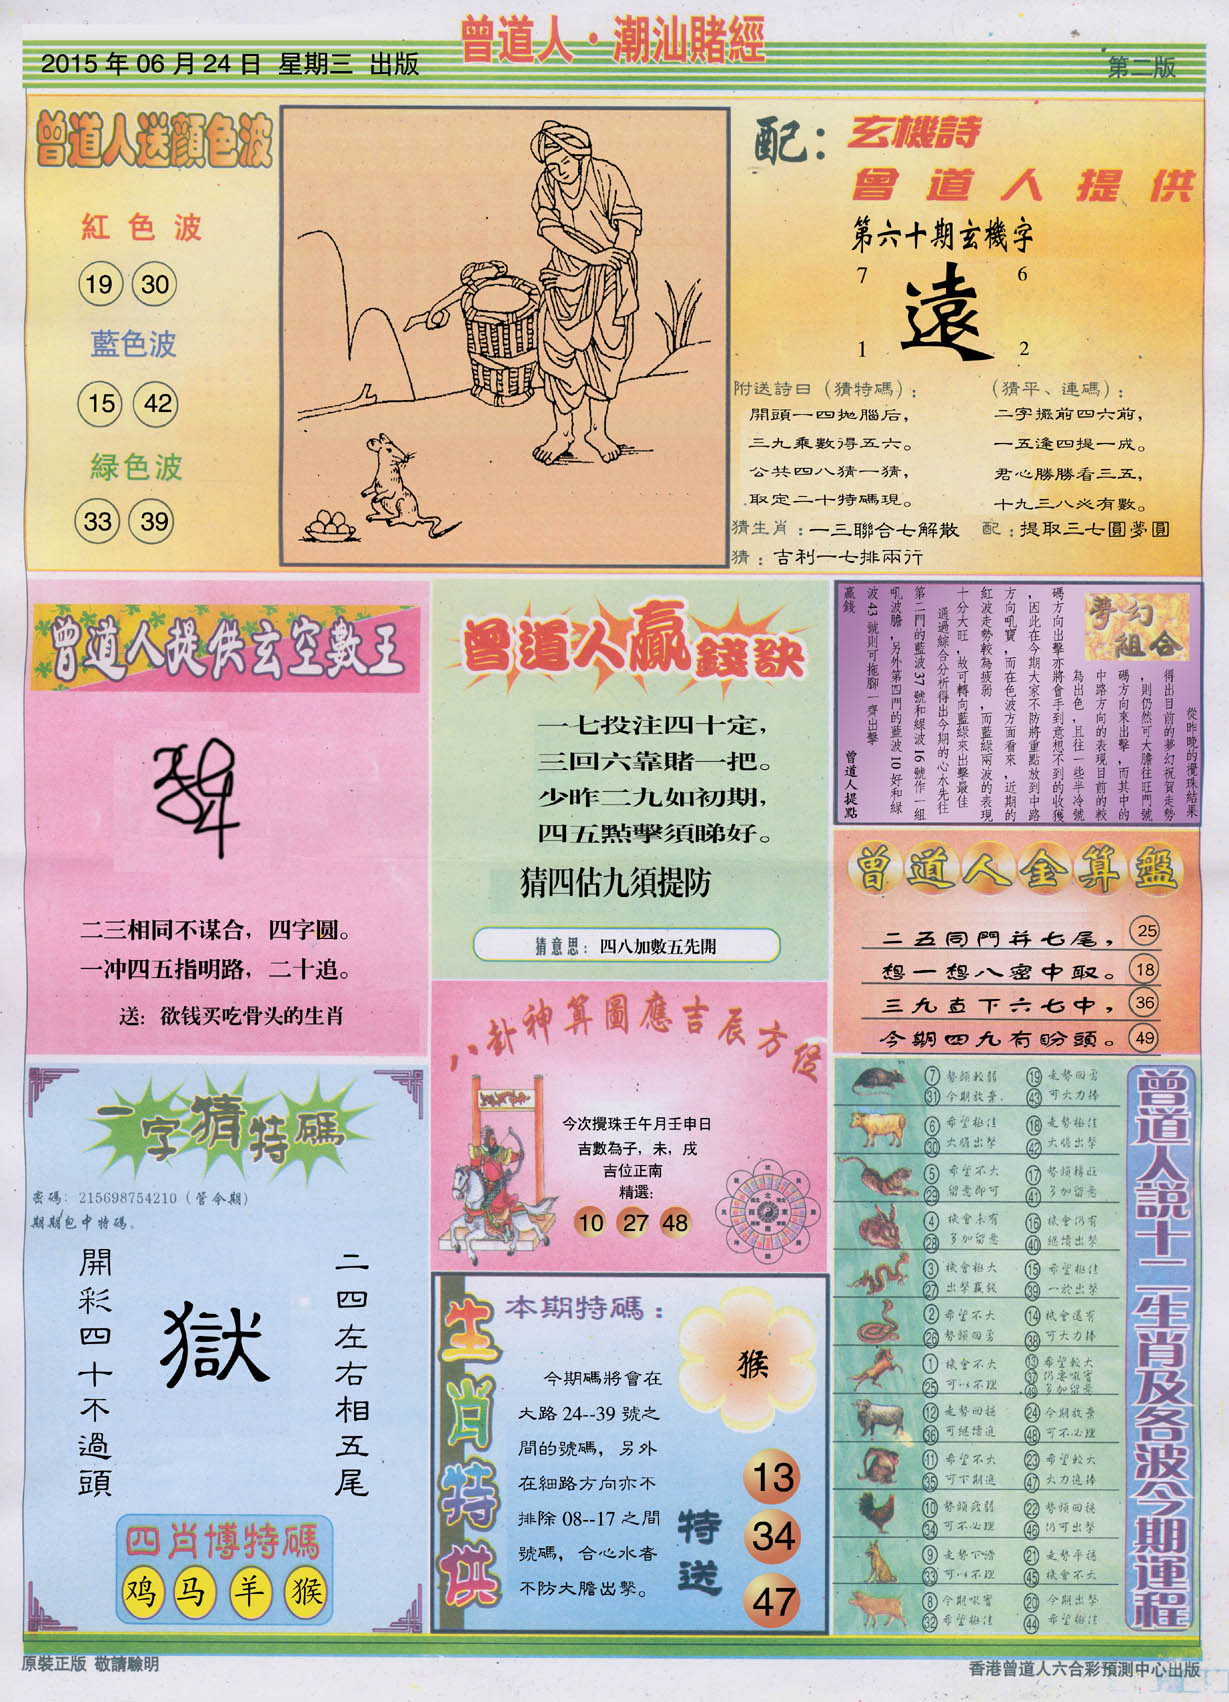 曾道人·潮汕賭經
2015 年 06 月 24 日 星期三 出版
第二版
曾道人送顏色波
紅色波
19 30
藍色波
15 42
緑色波
33 39
配：玄機詩
曾道人提供
第六十期玄機字
7 6
遠
1 2
附送詩曰（猜特碼）：
開頭一四拋腦后，
三九乘數得五六。
公共四八猜一猜，
取定二十特碼現。
猜生肖：一三聯合七解散
猜：吉利一七排兩行
（猜平、連碼）：
二字擺前四六前，
一五逢四提一成。
君心勝勝看三五，
十九三八必有數。
配：提取三七圓夢圓
曾道人提供玄空數王
二三相同不谋合，四字圆。
一冲四五指明路，二十追。
送：欲钱买吃骨头的生肖
曾道人贏錢訣
一七投注四十定，
三回六靠賭一把。
少昨二九如初期，
四五點擊須睇好。
猜四估九須提防
猜意思：四八加數五先開
夢幻組合
從昨晚的攪珠結果
得出目前的夢幻祝賀走勢
，則仍然可大膽往旺門號
碼方向來出擊，而其中的
中路方向的表現目前的較
為出色，且往一些半冷號
碼方向出擊亦將會手到意想不到的收獲
，因此在今期大家不防將重點放到中路
方向吼寶，而在色波方面看來，近期的
紅波走勢較為疲弱，而藍綠兩波的表現
十分大旺，故可轉向藍綠來出擊最佳
通過綜合分析得出今期的心水先往
第二門的藍波 37 號和緑波 16 號作一組
吼波膽，另外第四門的藍波 10 好和緑
波 43 號則可拖腳一齊出擊
贏錢
曾道人提點
曾道人金算盤
二五同門并七尾， 25
想一想八密中取。 18
三九直下六七中， 36
今期四九有盼頭。 49
一字猜特碼
密碼：215698754210（管令期）
期期包中特碼。
二四左右相五尾
獄
開彩四十不過頭
四肖博特碼
鸡 马 羊 猴
八卦神算圖應吉辰方位
今次攪珠壬午月壬申日
吉數為子，未，戌
吉位正南
精選：
10 27 48
生肖特供
本期特碼：
猴
今期碼將會在
大路 24--39 號之
間的號碼，另外
在細路方向亦不
排除 08--17 之間
號碼，合心水者
不防大膽出擊。
特送
13
34
47
曾道人說十二生肖及各波今期運程
7 勢頭較弱 19 走勢回勇
31 今期放棄. 43 可大力捧
6 希望極佳 18 走勢極佳
30 大膽出擊 42 大膽出擊
5 希望不大 17 勢頭轉旺
29 留意即可 41 多加留意
4 機會未有 16 機會仍有
28 多加留意 40 繼續出擊
3 機會極大 15 希望極佳
27 出擊贏錢 39 一於出擊
2 希望不大 14 機會還有
26 勢頭回勇 38 可大力捧
1 機會不大 13 希望較大
25 可以不理 37 仍要吼實
49 多加留意
12 走勢回穩 24 今期放棄
36 可繼續追 48 可不必理
11 希望不大 23 希望較大
35 可下期追 47 大力追捧
10 勢頭疲弱 22 勢頭回穩
34 可不必理 46 仍可出擊
9 走勢下滑 21 走勢平穩
33 可以不理 45 機會不大
8 今期吼實 20 今期出擊
32 希望極佳 44 希望極佳
原裝正版 敬請驗明
香港曾道人六合彩預測中心出版